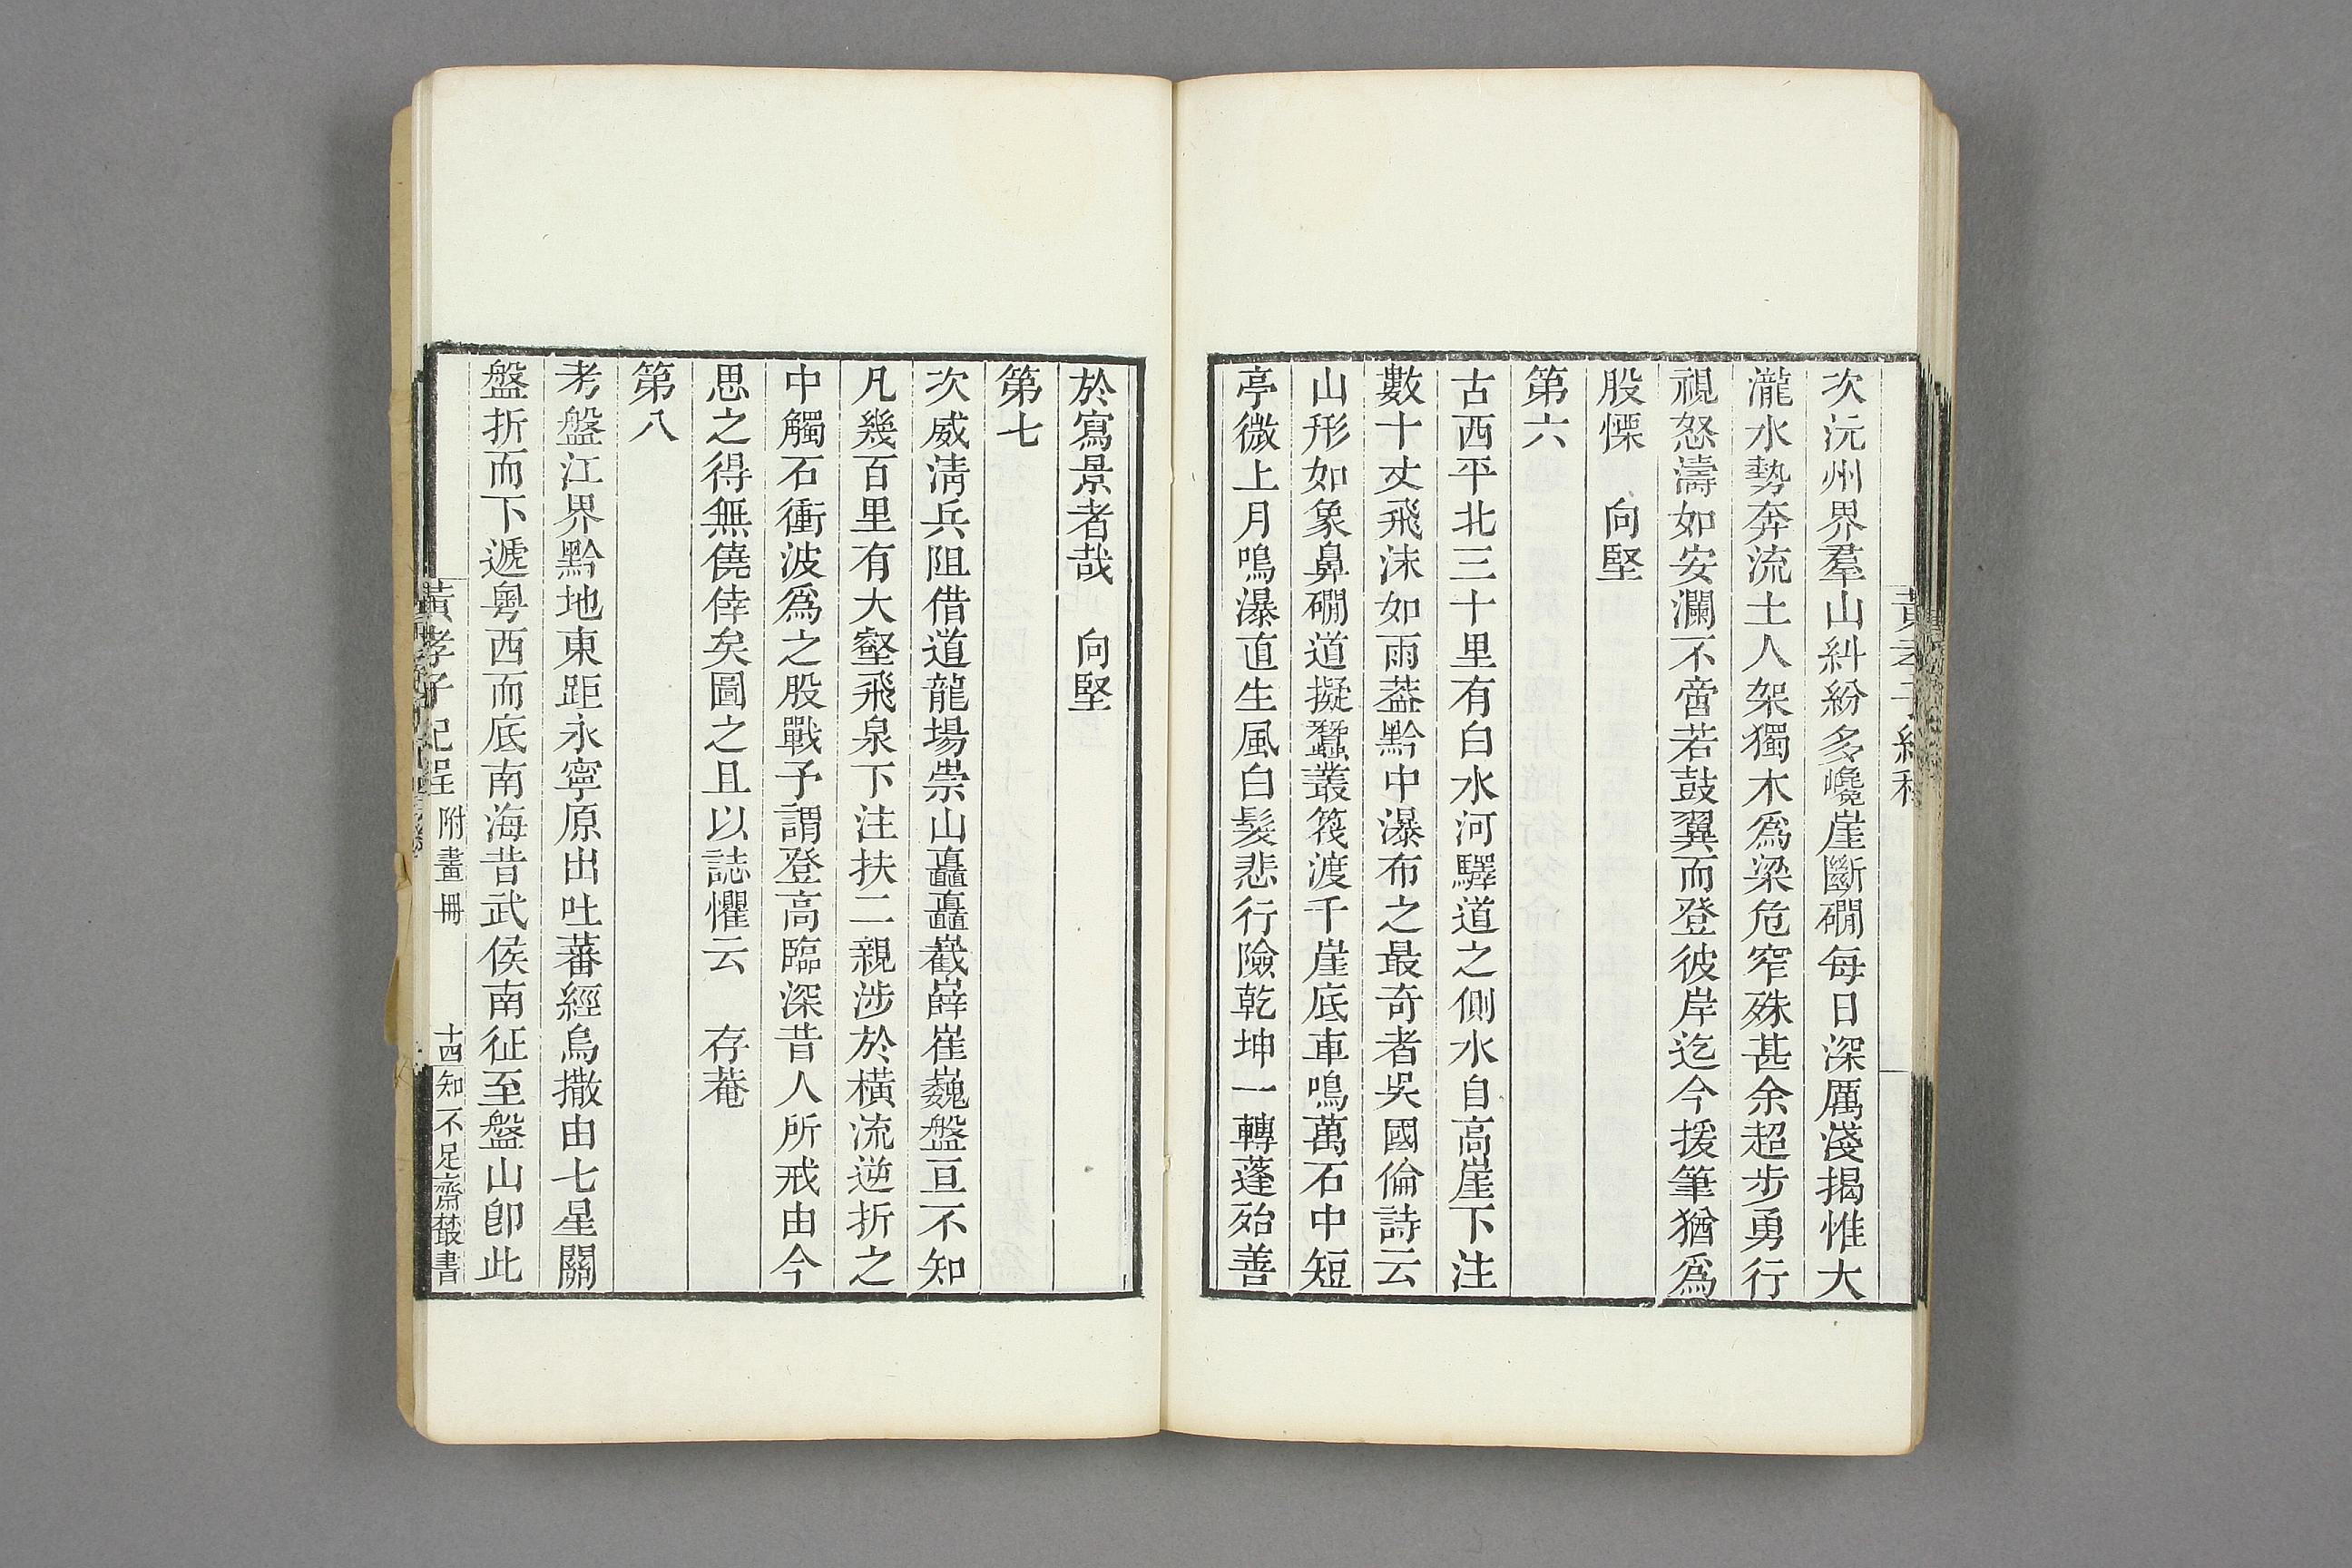 次沅州界羣山糾紛多巉崖斷磵每日深厲淺揭惟大
瀧水勢奔流土人架獨木爲梁危窄殊甚余超步勇行
視怒濤如安瀾不啻若鼓翼而登彼岸迄今援筆猶爲
股慄　向堅
第六
古西平北三十里有白水河驛道之側水自高崖下注
數十丈飛沫如雨葢黔中瀑布之最奇者吳國倫詩云
山形如象鼻磵道擬蠶叢筏渡千崖底車鳴萬石中短
亭微上月鳴瀑直生風白髮悲行險乾坤一轉蓬殆善
於寫景者哉　向堅
第七
次威淸兵阻借道龍場崇山矗矗嶻嶭崔巍盤亘不知
凡幾百里有大壑飛泉下注扶二親涉於橫流逆折之
中觸石衝波爲之股戰予謂登高臨深昔人所戒由今
思之得無僥倖矣圖之且以誌懼云　存菴
第八
考盤江界黔地東距永寧原出吐蕃經烏撒由七星關
盤折而下遞粵西而底南海昔武侯南征至盤山卽此
黃孝子紀程 附畫冊 十四 知不足齋叢書